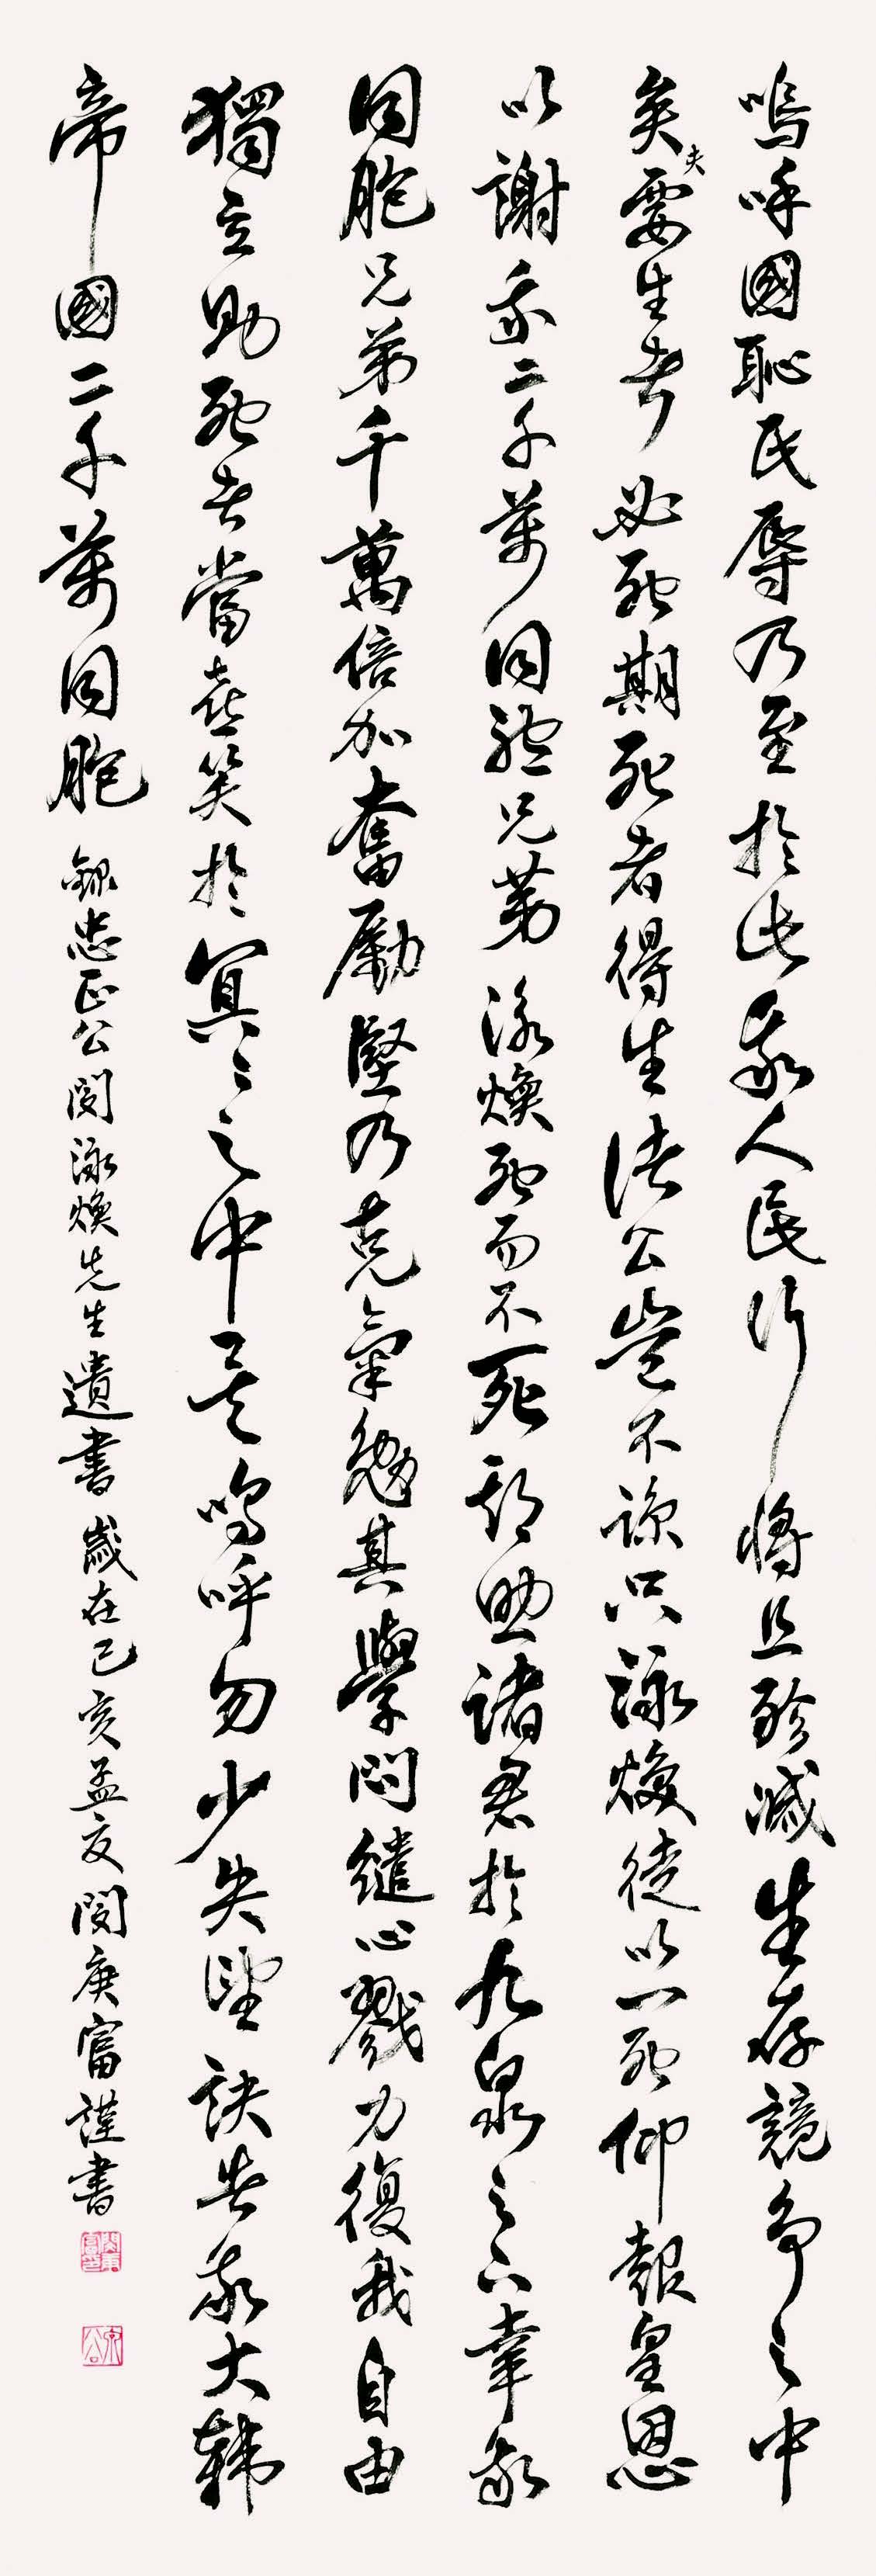 嗚呼國恥民辱乃至於此我人民行將且殄滅生存競爭之中
矣夫要生者必死期死者得生諸公豈不諒只泳煥徒以一死仰報皇恩
以謝我二千萬同胞兄弟泳煥死而不死期助諸君於九泉之下幸我
同胞兄弟千萬倍加奮勵堅乃克氣勉其學問繾心戮力復我自由
獨立助死者當喜笑於冥〻之中矣嗚呼勿少失望訣告我大韓
帝國二千萬同胞 錄忠正公閔泳煥先生遺書 歲在己亥孟夏 閔庚富謹書